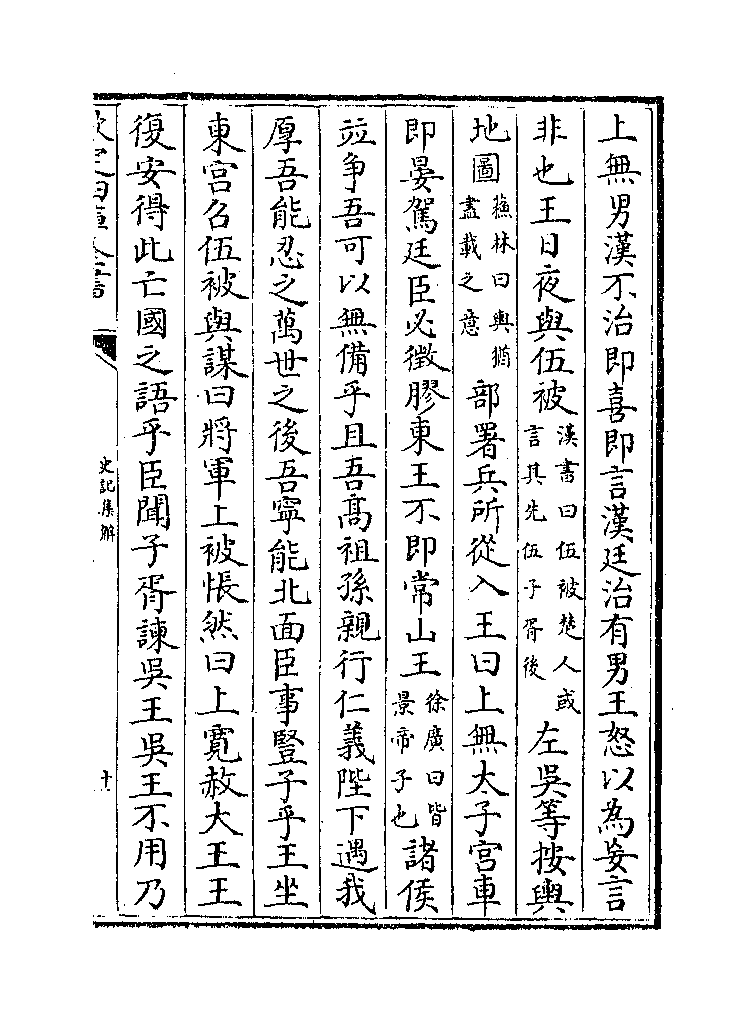 上無男漢不治即喜即言漢廷治有男王怒以為妄言
非也王日夜與伍被漢書曰伍被楚人或言其先伍子胥後左吳等按輿
地圖蘓林曰輿猶盡載之意部署兵所從入王曰上無太子宮車
即晏駕廷臣必徵膠東王不即常山王徐廣曰皆景帝子也諸侯
竝争吾可以無備乎且吾髙祖孫親行仁義陛下遇我
厚吾能忍之萬世之後吾寧能北面臣事豎子乎王坐
東宮召伍被與謀曰將軍上被悵然曰上寛赦大王王
復安得此亡國之語乎臣聞子胥諫吳王吳王不用乃
欽定四庫全書
史記集解
十